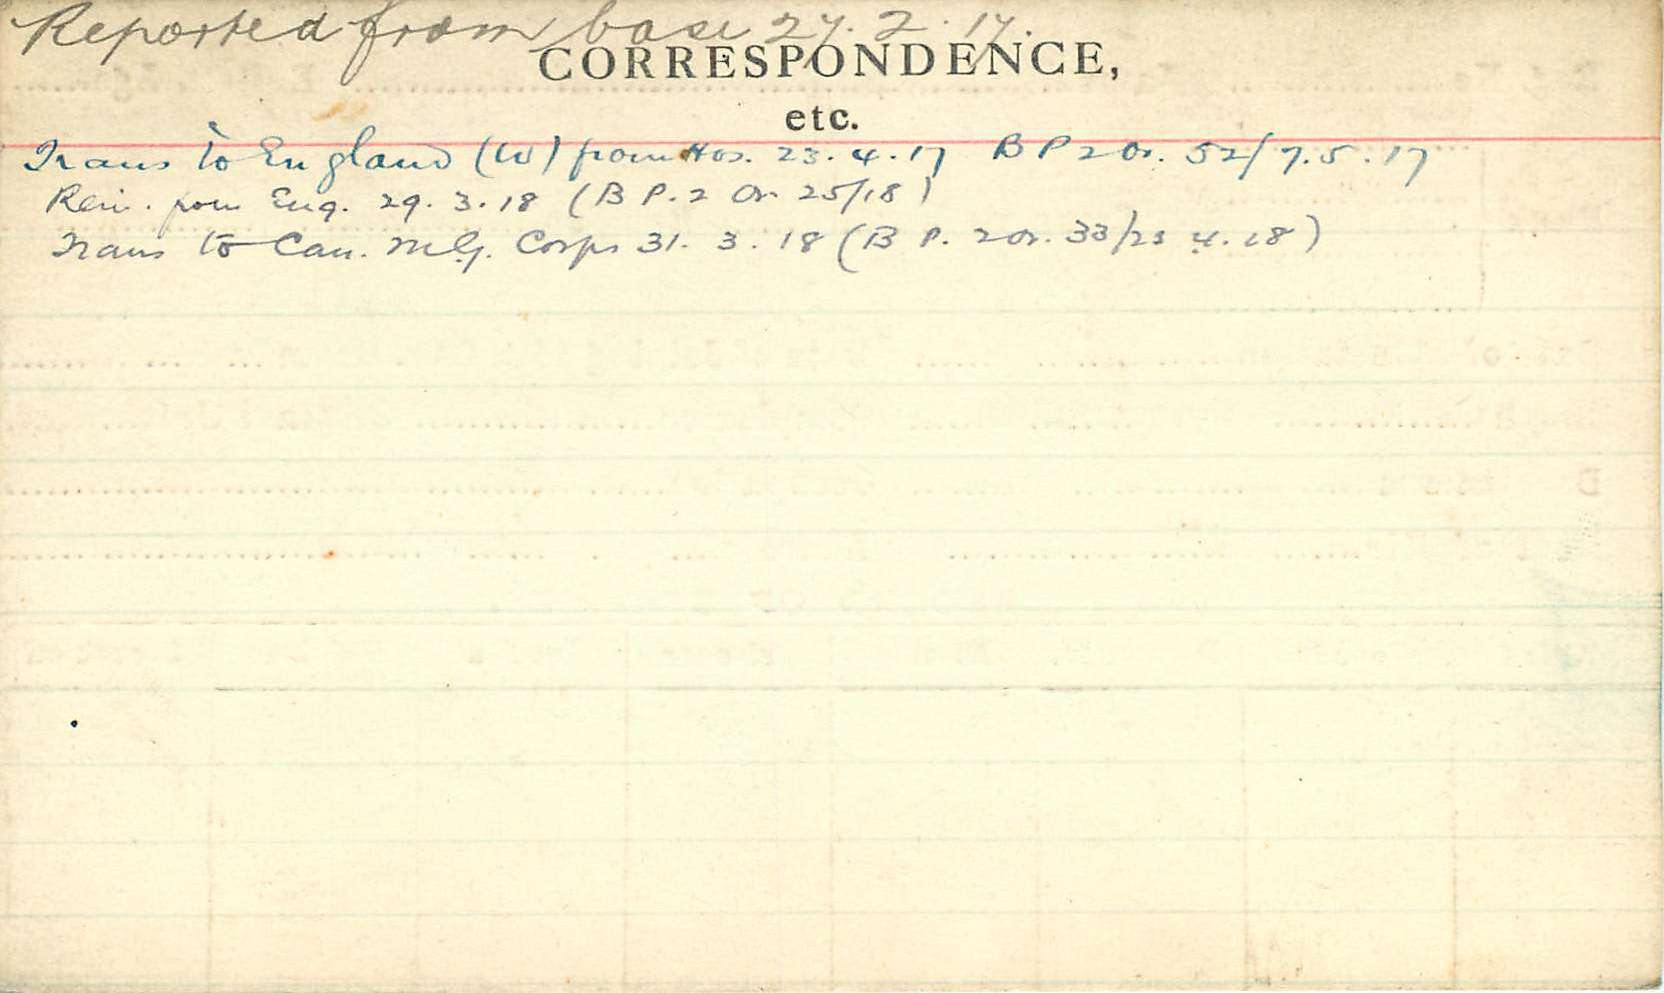 Reported from base 27.2.17.
CORRESPONDENCE,
etc.
Trans to England (W) from Hos. 23.4.17 B P 2 Or. 52/7.5.17
Rein. from Eng. 29.3.18 (B P. 2 Or 25/18)
Trans to Can. M.G. Corps 31.3.18 (B P. 2 Or. 33/23 4.18)